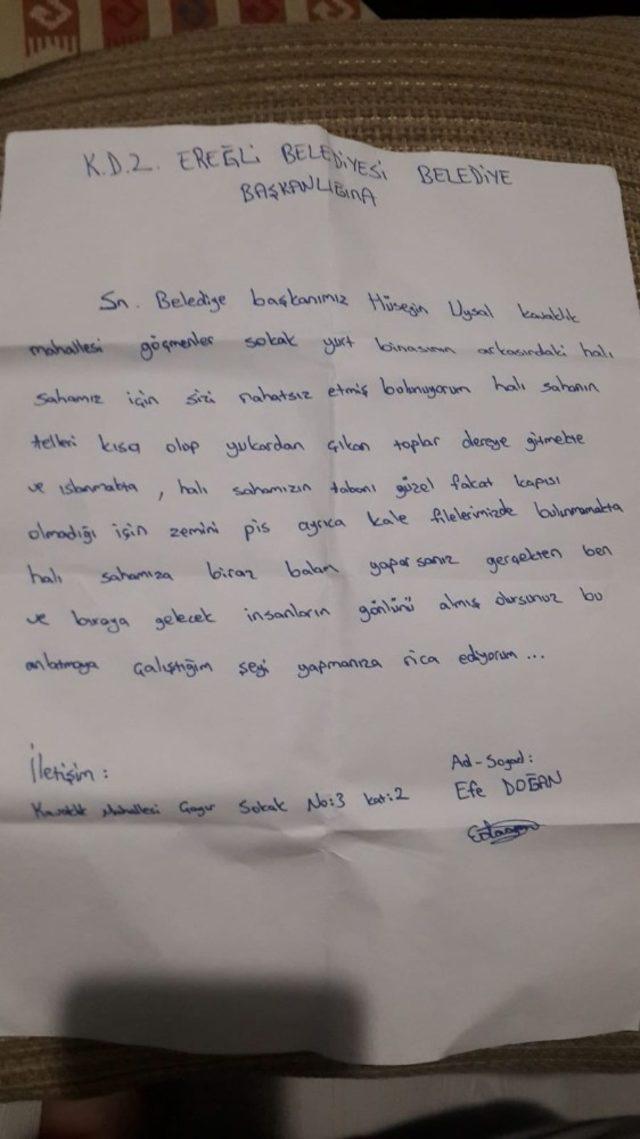 K.D.Z. EREĞLİ BELEDİYESİ BELEDİYE
BAŞKANLIĞINA
Sn. Belediye başkanımız Hüseyin Uysal kavaklık
mahallesi göçmenler sokak yurt binasının arkasındaki halı
sahamız için sizi rahatsız etmiş bulunuyorum halı sahanın
telleri kısa olup yukardan çıkan toplar dereye gitmekte
ve ıslanmakta, halı sahamızın tabanı güzel fakat kapısı
olmadığı için zemini pis ayrıca kale filelerimizde bulunmamakta
halı sahamıza biraz bakım yaparsanız gerçekten ben
ve buraya gelecek insanların gönlünü almış olursunuz bu
anlatmaya çalıştığım şeyi yapmanıza rica ediyorum...
İletişim:
Ad-Soyad:
Kavaklık Mahallesi Sokak No:3 kat:2
Efe DOĞAN